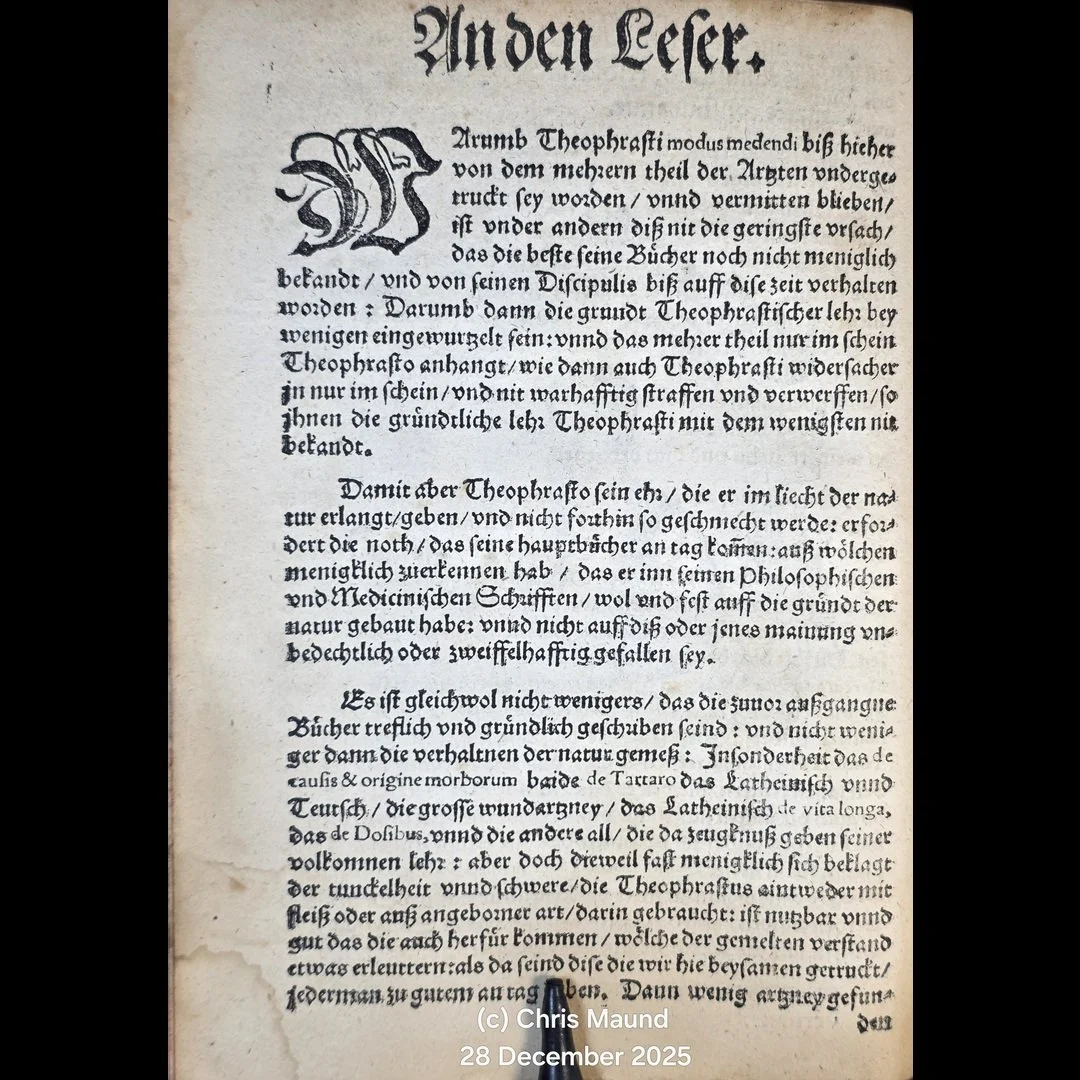 An den Leser.
WArumb Theophrasti modus medendi biß hieher
von dem mehrern theil der Artzten vnderge-
truckt sey worden / vnnd vermitten blieben /
ist vnder andern diß nit die geringste vrsach /
das die beste seine Bücher noch nicht meniglich
bekandt / vnd von seinen Discipulis biß auff dise zeit verhalten
worden : Darumb dann die grundt Theophrastischer lehr bey
wenigen eingewurtzelt sein: vnnd das mehrer theil nur im schein
Theophrasto anhangt / wie dann auch Theophrasti widersacher
jn nur im schein / vnd nit warhafftig straffen vnd verwerffen / so
jhnen die gründtliche lehr Theophrasti mit dem wenigsten nit
bekandt.
Damit aber Theophrasto sein ehr / die er im liecht der na-
tur erlangt / geben / vnd nicht forthin so geschmecht werde: erfor-
dert die noth / das seine hauptbücher an tag kom̄en: auß wölchen
menigklich zuerkennen hab / das er inn seinen Philosophischen
vnd Medicinischen Schrifften / wol vnd fest auff die gründt der
natur gebaut habe: vnnd nicht auff diß oder jenes mainung vn-
bedechtlich oder zweiffelhafftig gefallen sey.
Es ist gleichwol nicht wenigers / das die zuuor außgangne
Bücher treflich vnd gründlich geschriben seind : vnd nicht weni-
ger dann die verhaltnen der natur gemeß : Insonderheit das de
causis & origine morborum baide de Tartaro das Latheinisch vnnd
Teutsch / die grosse wundartzney / das Latheinisch de vita longa,
das de Dosibus, vnnd die andere all / die da zeugknuß geben seiner
volkomnen lehr : aber doch dieweil fast menigklich sich beklagt
der tunckelheit vnnd schwere / die Theophrastus aintweder mit
fleiß oder auß angeborner art / darin gebraucht: ist nutzbar vnnd
gut das die auch herfür kommen / wölche der gemelten verstand
etwas erleuttern: als da seind dise die wir hie beysamen getruckt /
jederman zu gutem an tag ben. Dann wenig artzney gefun-
den
(c) Chris Maund
28 December 2025